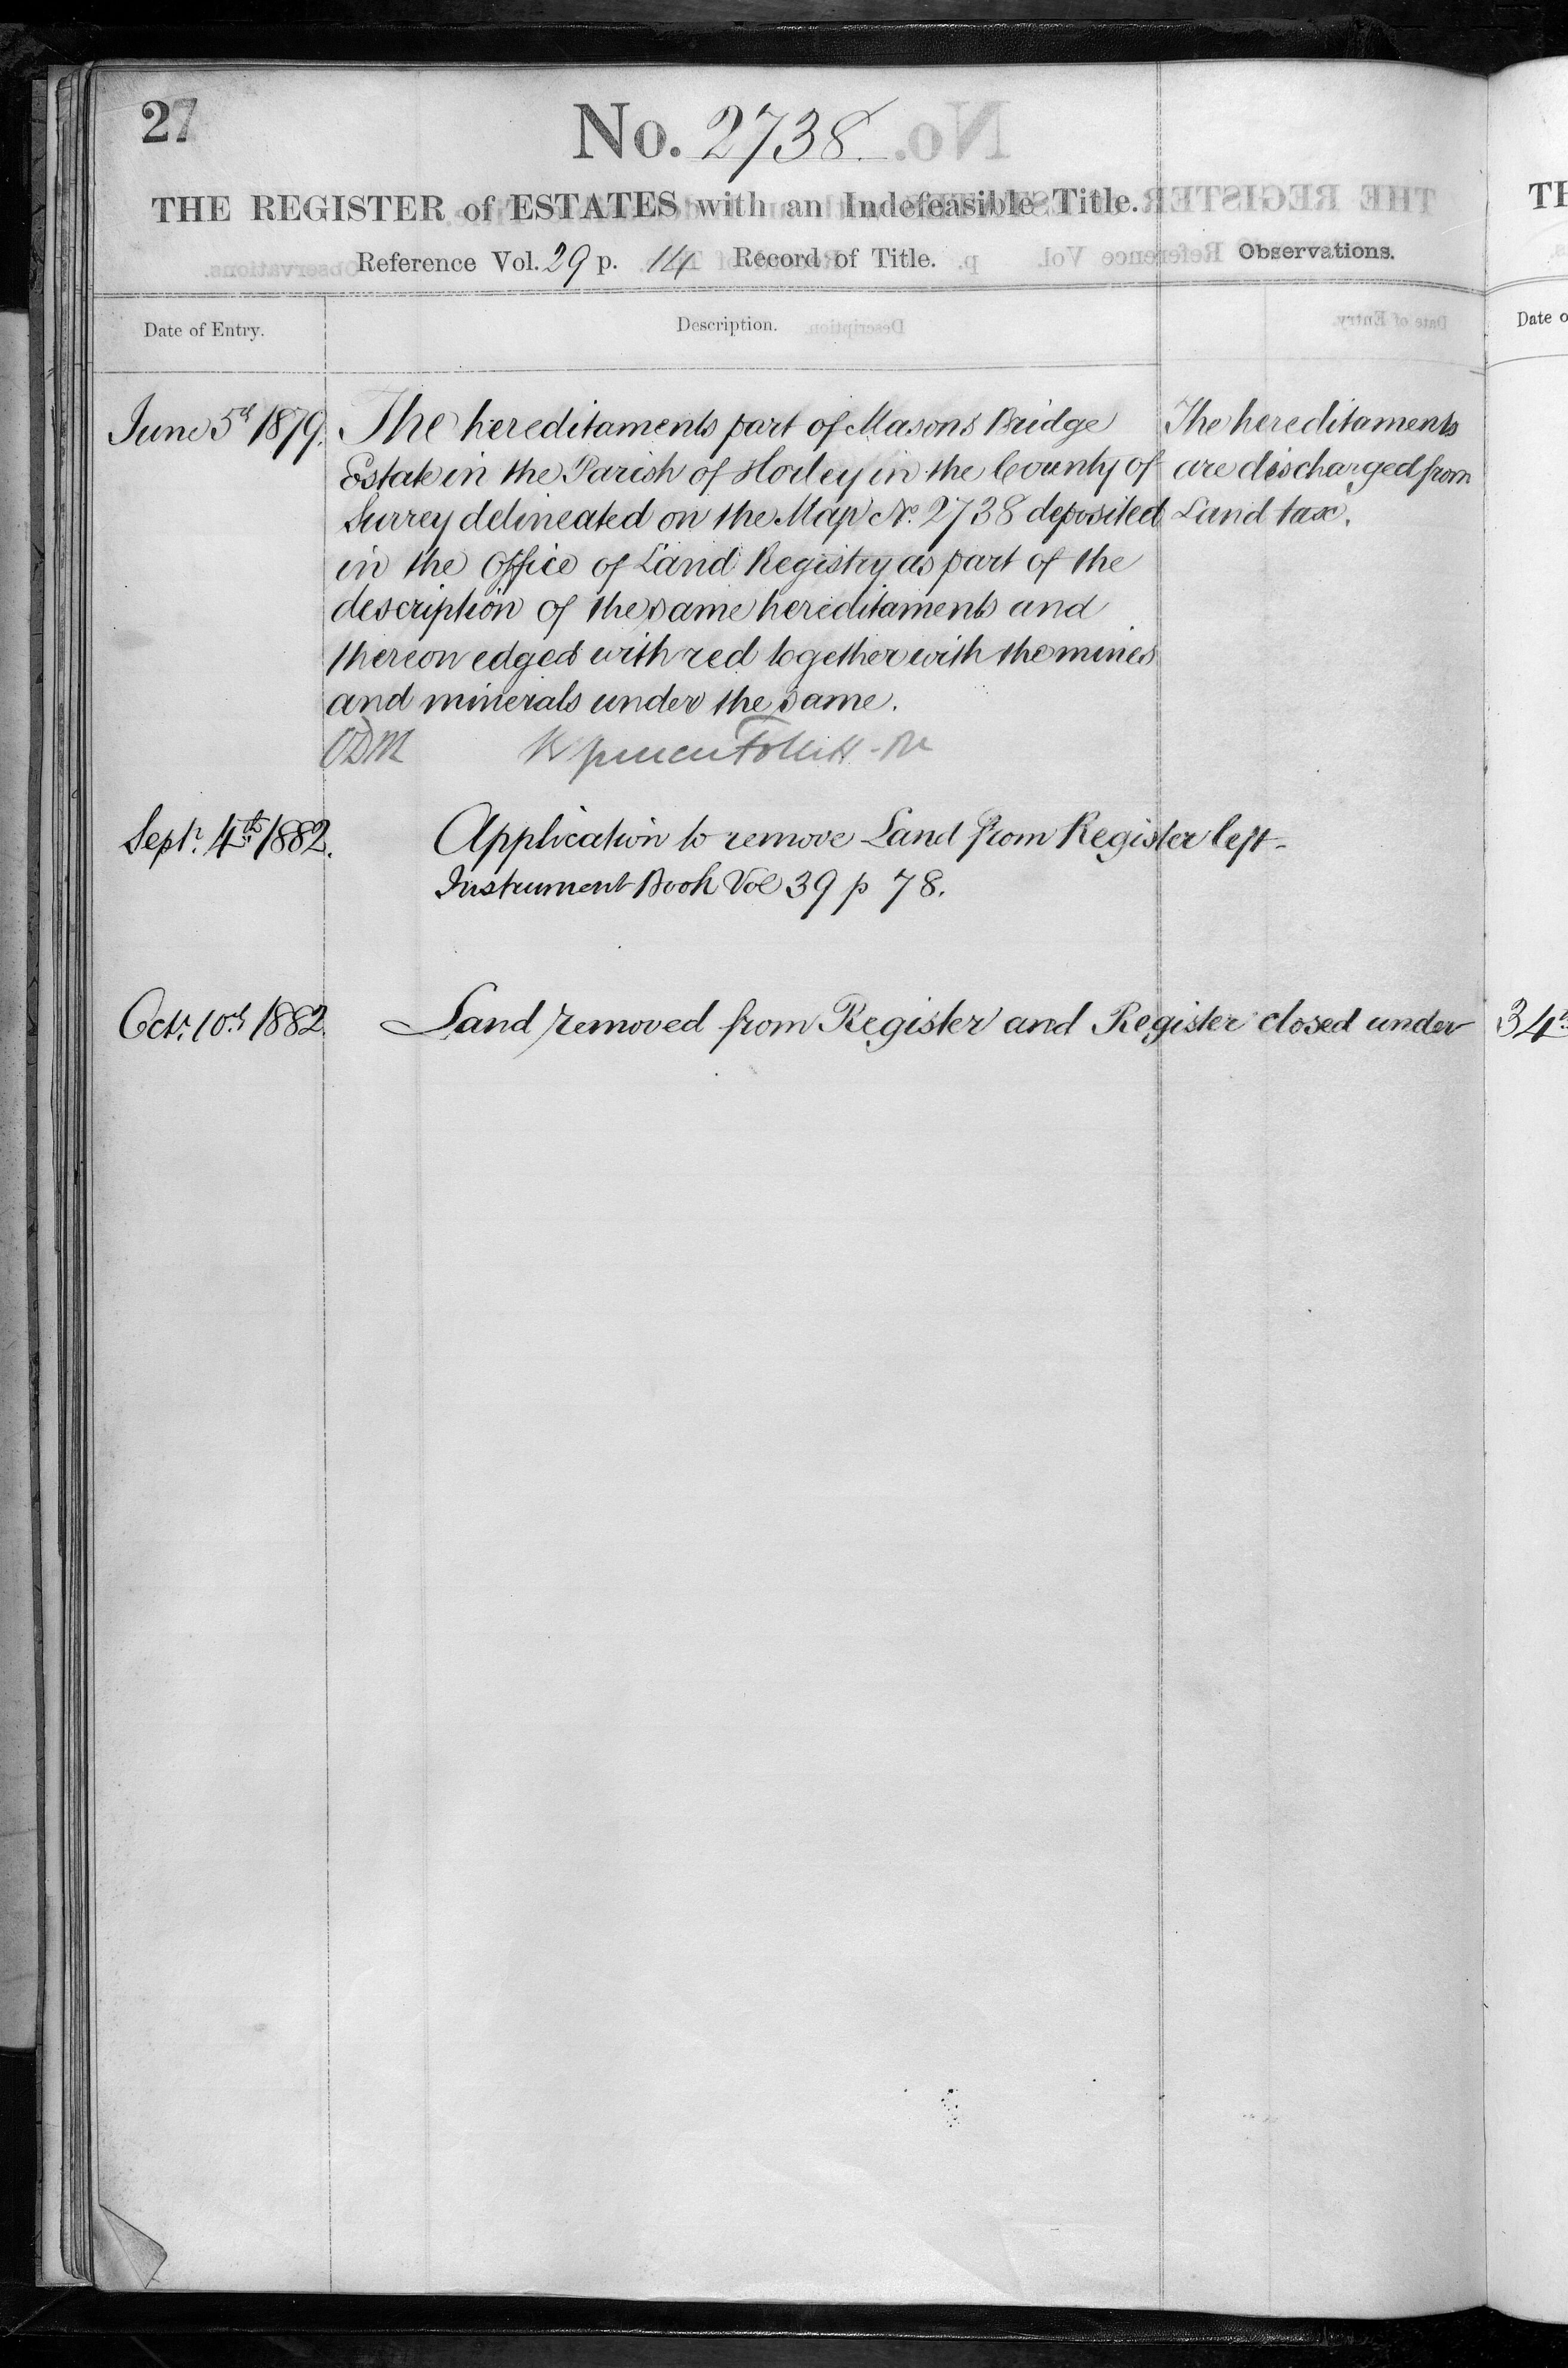 27
No. 2738.
THE REGISTER of ESTATES with an Indefeasible Title.
Reference Vol. 29 p. 14 Record of Title. Observations.
Date of Entry. Description.
June 5th 1879. The hereditaments part of Masons Bridge
Estate in the Parish of Horley in the County of
Surrey delineated on the Map No. 2738 deposited
in the Office of Land Registry as part of the
description of the same hereditaments and
thereon edged with red together with the mines
and minerals under the same.
The hereditaments
are discharged from
Land tax.
Sept. 4th 1882. Application to remove Land from Register left
Instrument Book Vol 39 p 78.
Oct. 10th 1882. Land removed from Register and Register closed under 34
TH
Date o